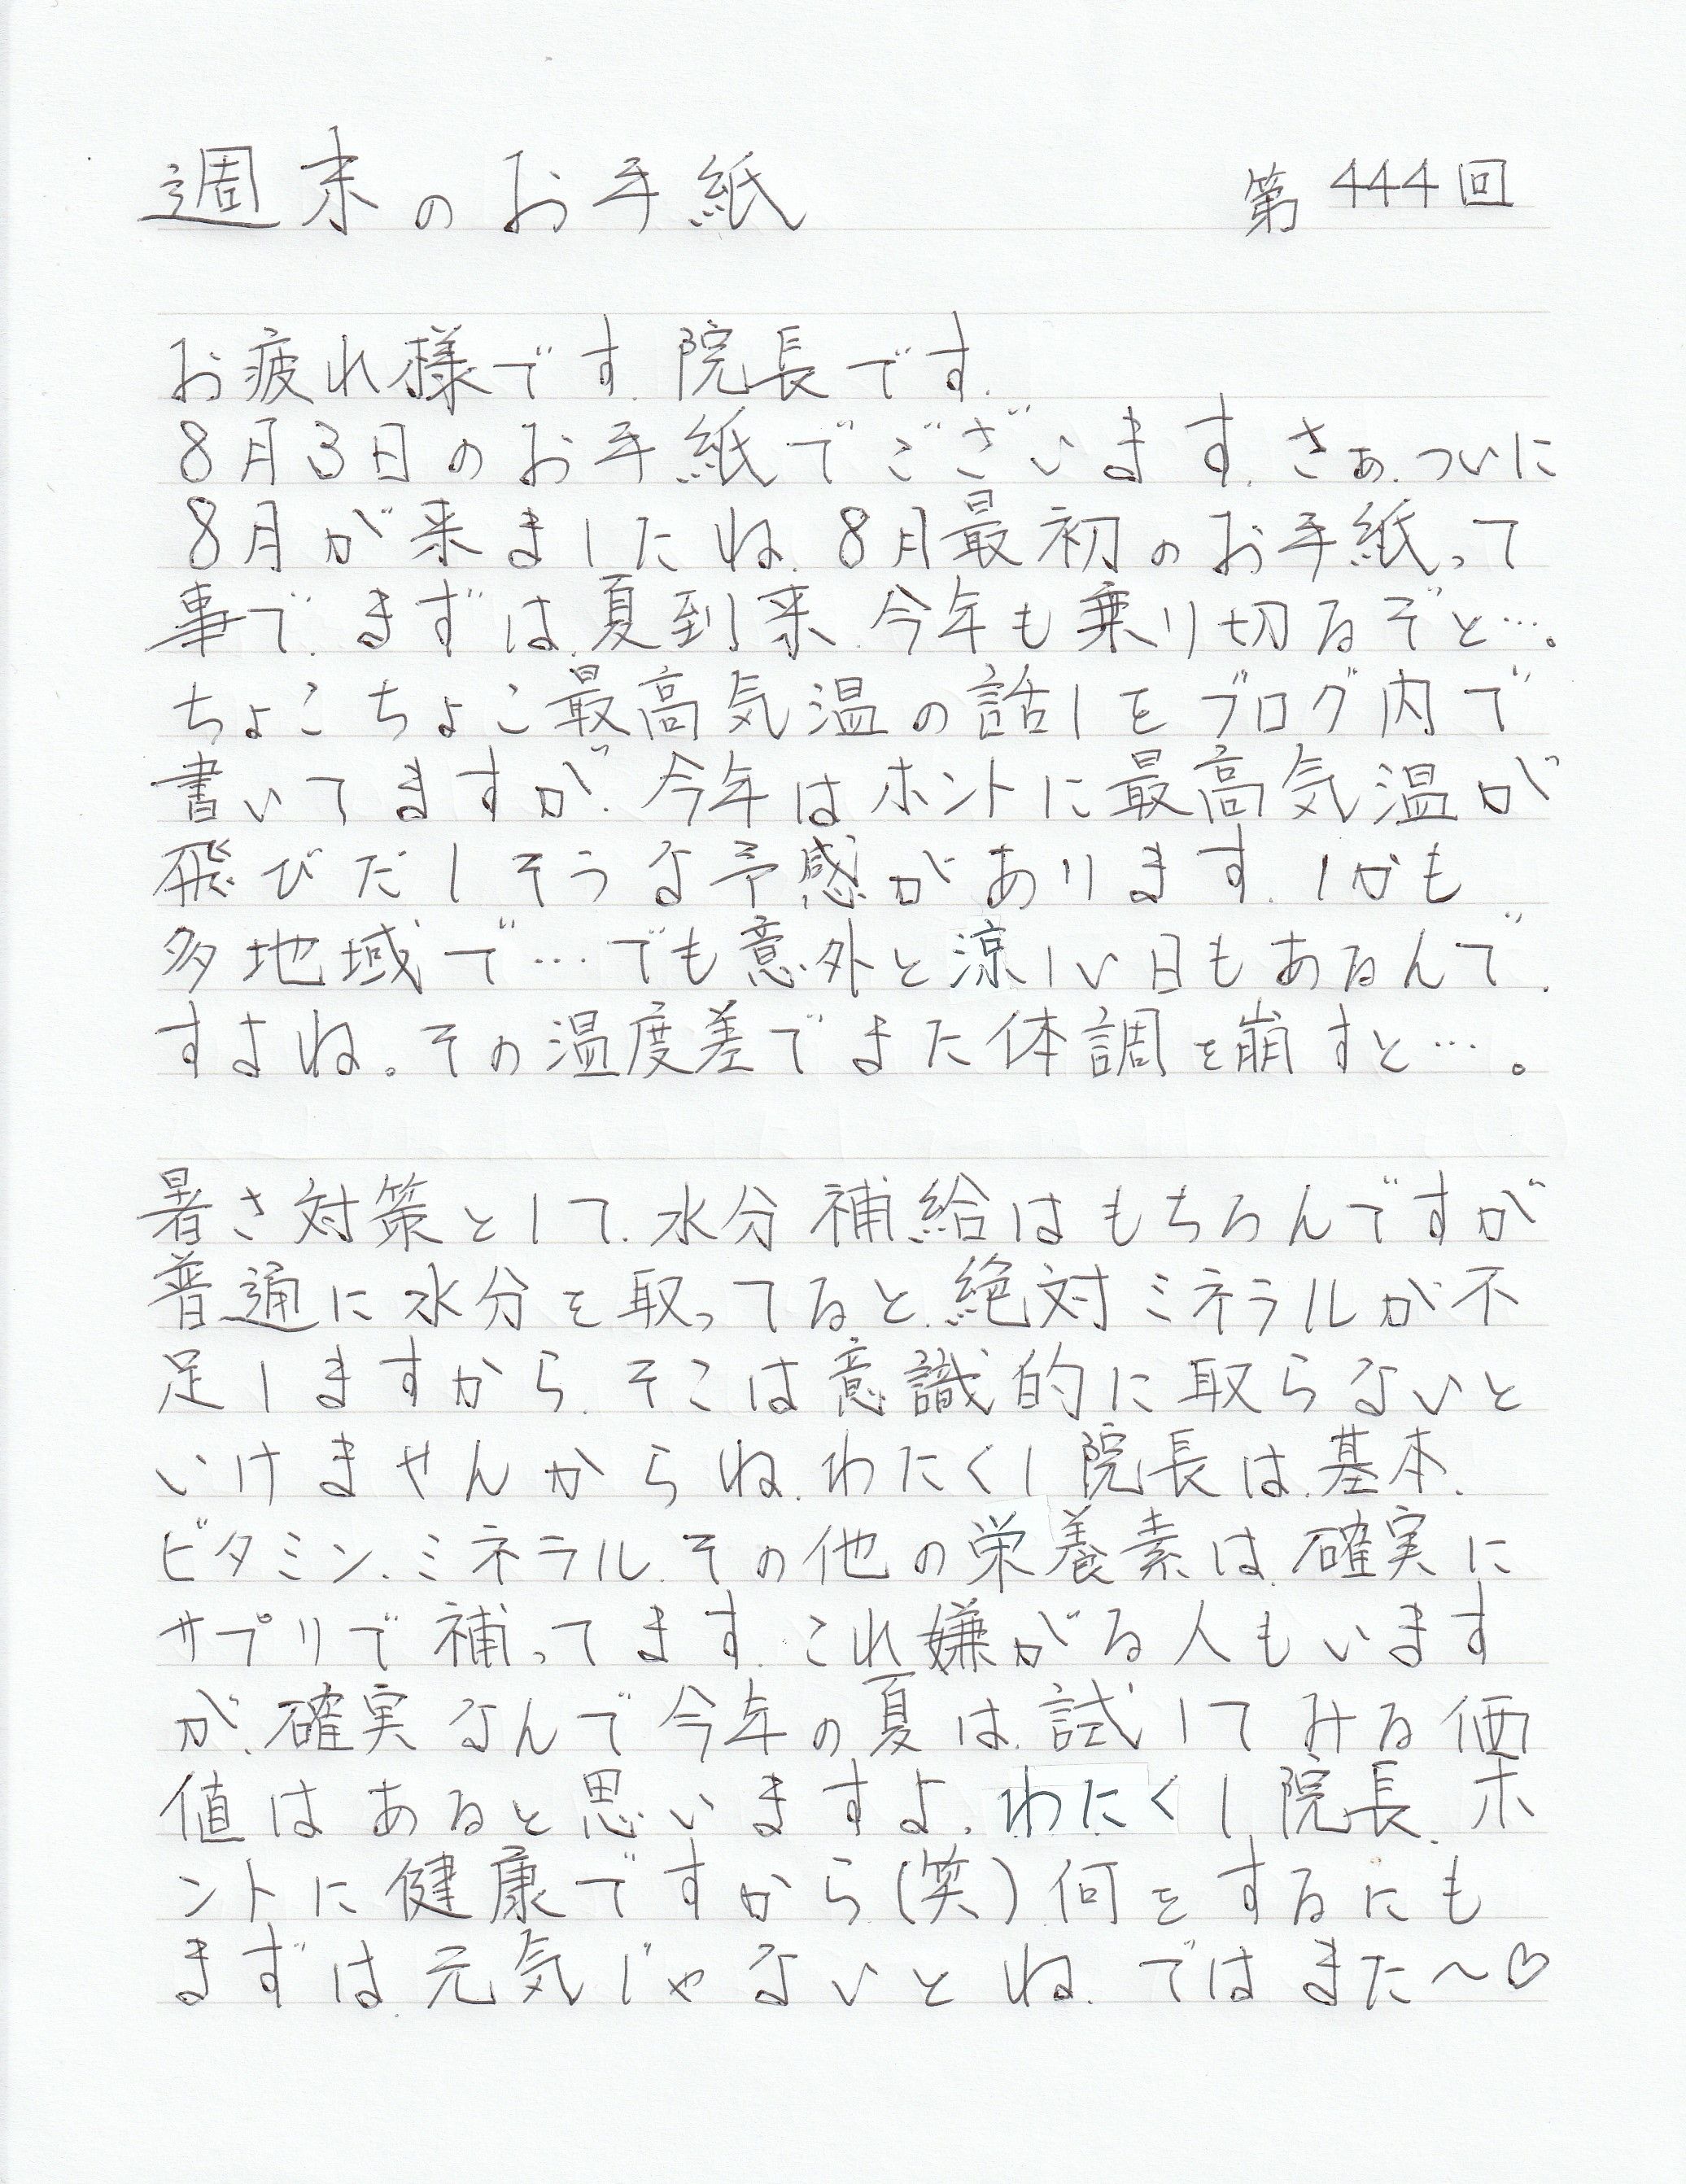 週末のお手紙 第444回
お疲れ様です.院長です.
8月3日のお手紙でございます.さぁ.ついに
8月が来ましたね.8月最初のお手紙って
事で.まずは.夏到来.今年も乗り切るぞと…。
ちょこちょこ最高気温の話しをブログ内で
書いてますが.今年はホントに最高気温が
飛びだしそうな予感があります.しかも
多地域で…でも意外と涼しい日もあるんで.
すよね。その温度差でまた体調を崩すと…。
暑さ対策として.水分補給はもちろんですが
普通に水分を取ってると.絶対ミネラルが不
足しますから.そこは意識的に取らないと
いけませんからね.わたくし院長は.基本.
ビタミン.ミネラル.その他の栄養素は.確実に
サプリで補ってます.これ嫌がる人もいます
が.確実なんで今年の夏は.試してみる価
値はあると思いますよ.わたくし院長.ホ
ントに健康ですから(笑)何をするにも
まずは.元気じゃないとね.ではまた～♡